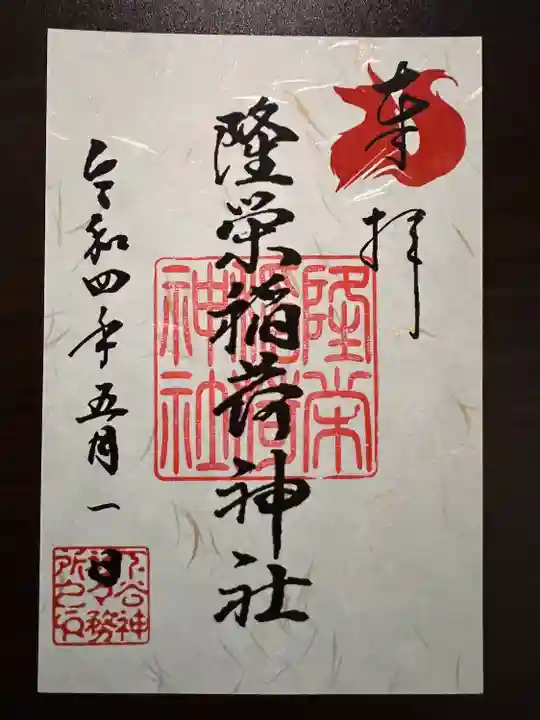 奉拝
隆栄稲荷神社
隆栄稲荷神社
令和四年五月一日
下谷神社々務所之印